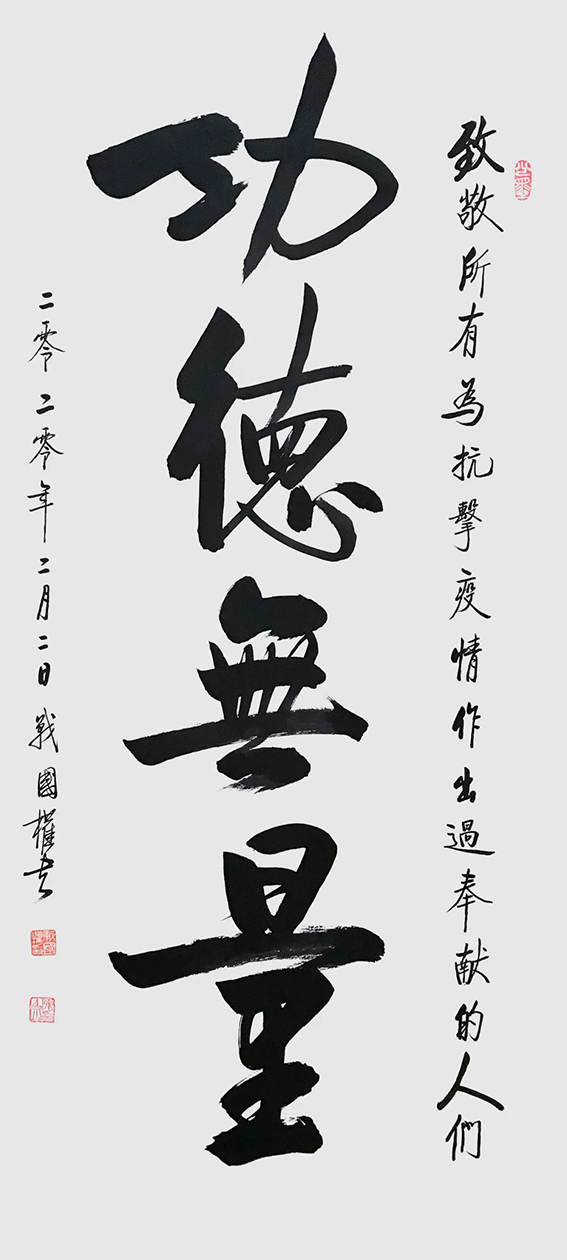 致敬所有為抗擊疫情作出過奉献的人們
功德無量
二零二零年二月二日戰國權书